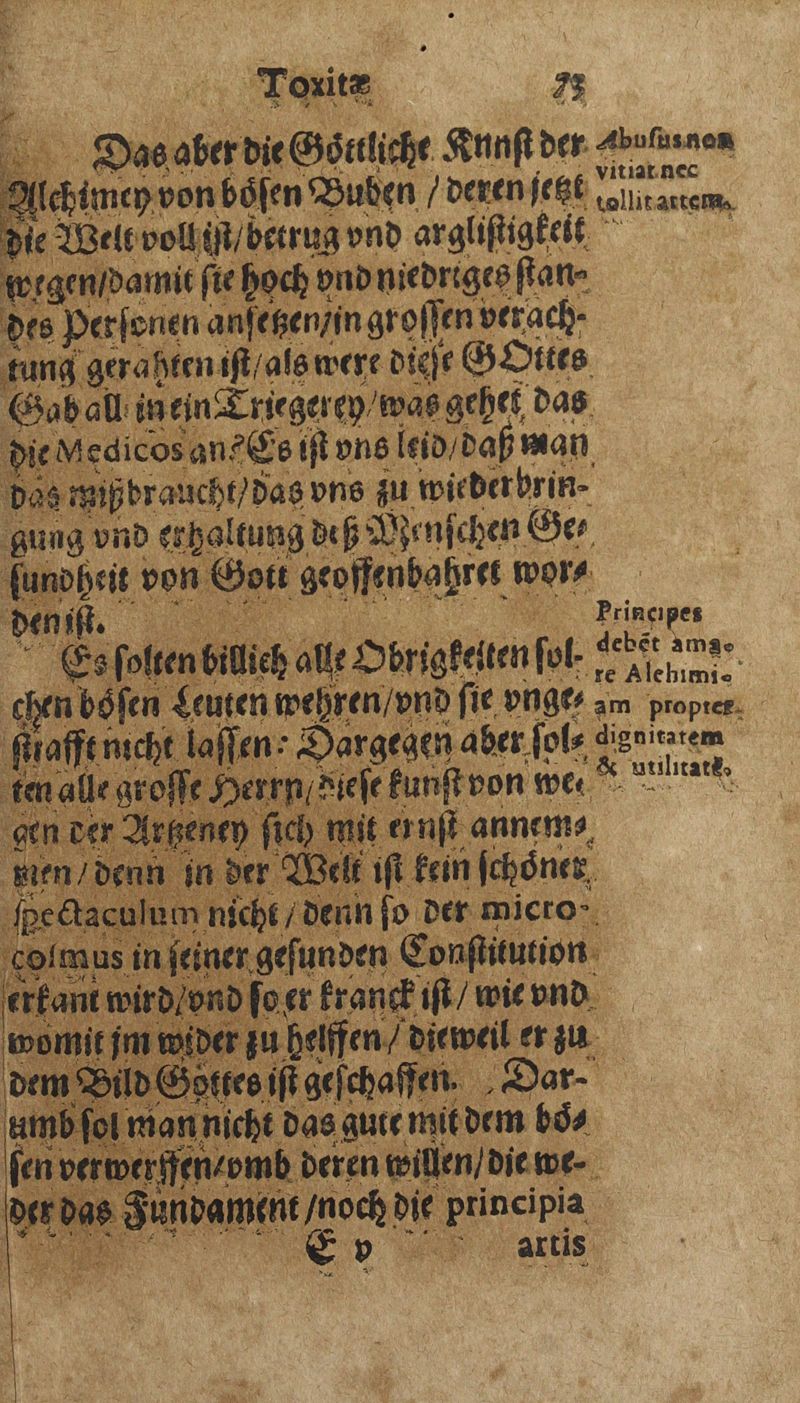 Toxitæ 73
Das aber die Göttliche Knnst der
Alchimey von bösen Buben / deren jetzt
die Welt voll ist/betrug vnd arglistigkeit
wegen/damit sie hoch vnd niedriges stan-
des Personen ansetzen/in grossen verach-
tung gerahten ist/als were diese GOttes
Gab all in ein Triegerey/was gehet das
die Medicos an? Es ist vns leid/daß man
das mißbraucht/das vns zu wiederbrin-
gung vnd erhaltung deß Menschen Ge-
sundheit von Gott geoffenbahret wor-
den ist.
Abusus non
vitiat nec
tollit artem.
Es solten billich alle Obrigkeiten sol-
chen bösen Leuten wehren/vnd sie vnge-
strafft nicht lassen: Dargegen aber sol-
ten alle grosse Herrn/diese kunst von we-
gen der Artzeney sich mit ernst annem-
men/denn in der Welt ist kein schöner
spectaculum nicht/denn so der micro-
cosmus in seiner gesunden Constitution
erkant wird/vnd so er kranck ist/wie vnd
womit jm wider zu helffen/dieweil er zu
dem Bild Gottes ist geschaffen. Dar-
umb sol man nicht das gute mit dem bö-
sen verwerffen/vmb deren willen/die we-
der das Fundament/noch die principia
Principes
debēt ama-
re Alchimi-
am propter
dignitatem
& utilitatē.
E v artis